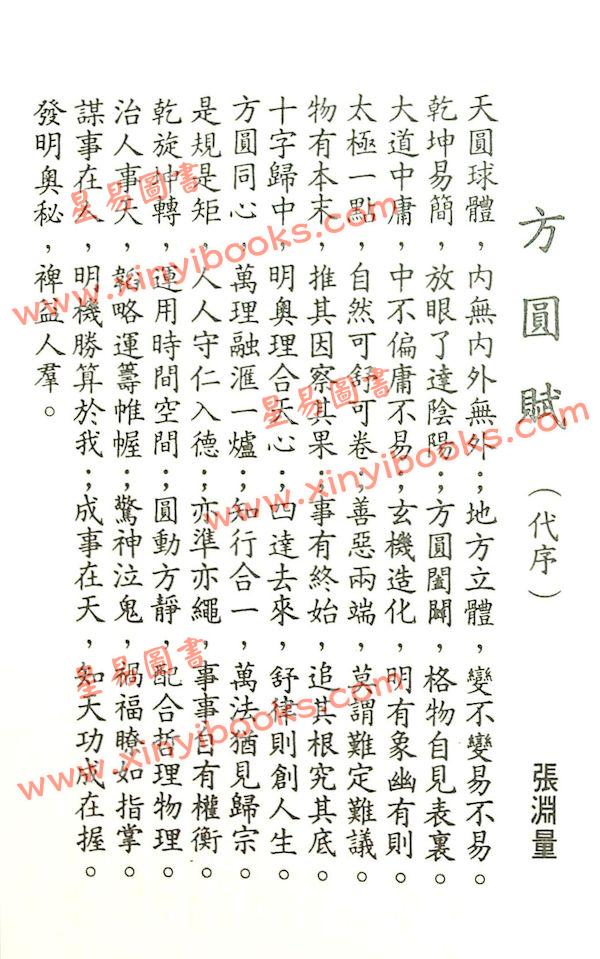 方圓賦（代序） 張淵量
天圓球體，內無內外無外；地方立體，變不變易不易。
乾坤易簡，放眼了達陰陽；方圓闔闢，格物自見表裏。
大道中庸，中不偏庸不易；玄機造化，明有象幽有則。
太極一點，自然可舒可卷；善惡兩端，莫謂難定難議。
物有本末，推其因察其果；事有終始，追其根究其底。
十字歸中，明奧理合天心；四達去來，舒律則創人生。
方圓同心，萬理融滙一爐；知行合一，萬法猶見歸宗。
是規是矩，人人守仁入德；亦準亦繩，事事自有權衡。
乾旋坤轉，運用時間空間；圓動方靜，配合哲理物理。
治人事天，韜略運籌帷幄；驚神泣鬼，禍福瞭如指掌。
謀事在人，明機勝算於我；成事在天，知天功成在握。
發明奧秘，裨益人羣。
星易圖書
www.xinyibooks.com
星易圖書
www.xinyibooks.com
星易圖書
www.xinyibooks.com